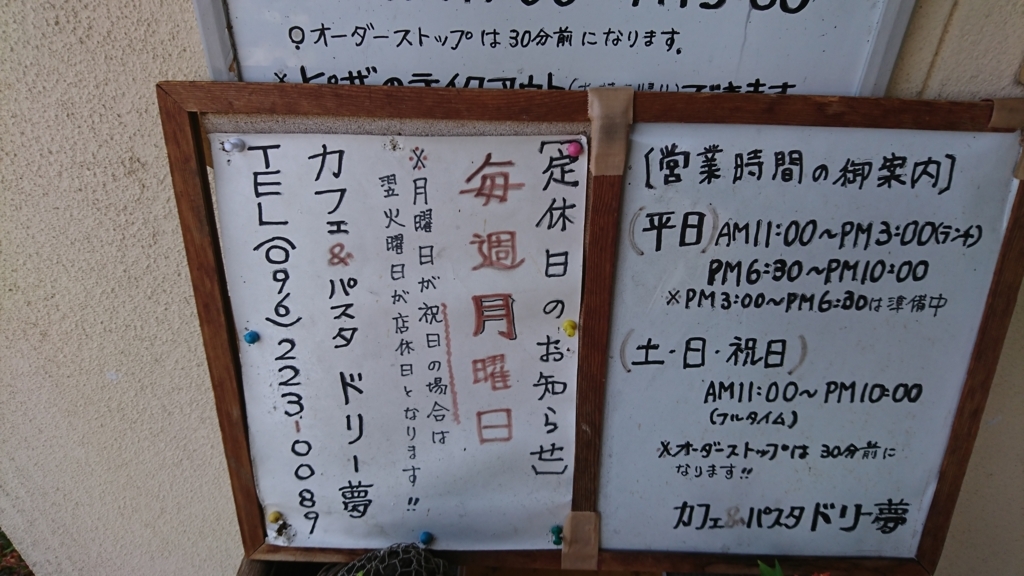 ○オーダーストップは30分前になります。
※ピザのテイクアウト
できます
[定休日のお知らせ]
毎週月曜日
※月曜日が祝日の場合は
翌火曜日が店休日となります!!
カフェ&パスタ ドリー夢
TEL(096)223-0089
[営業時間の御案内]
(平日)AM11:00~PM3:00(ランチ)
PM6:30~PM10:00
※PM3:00~PM6:30は準備中
(土・日・祝日)
AM11:00~PM10:00
(フルタイム)
※オーダーストップは 30分前に
なります!!
カフェ&パスタドリー夢